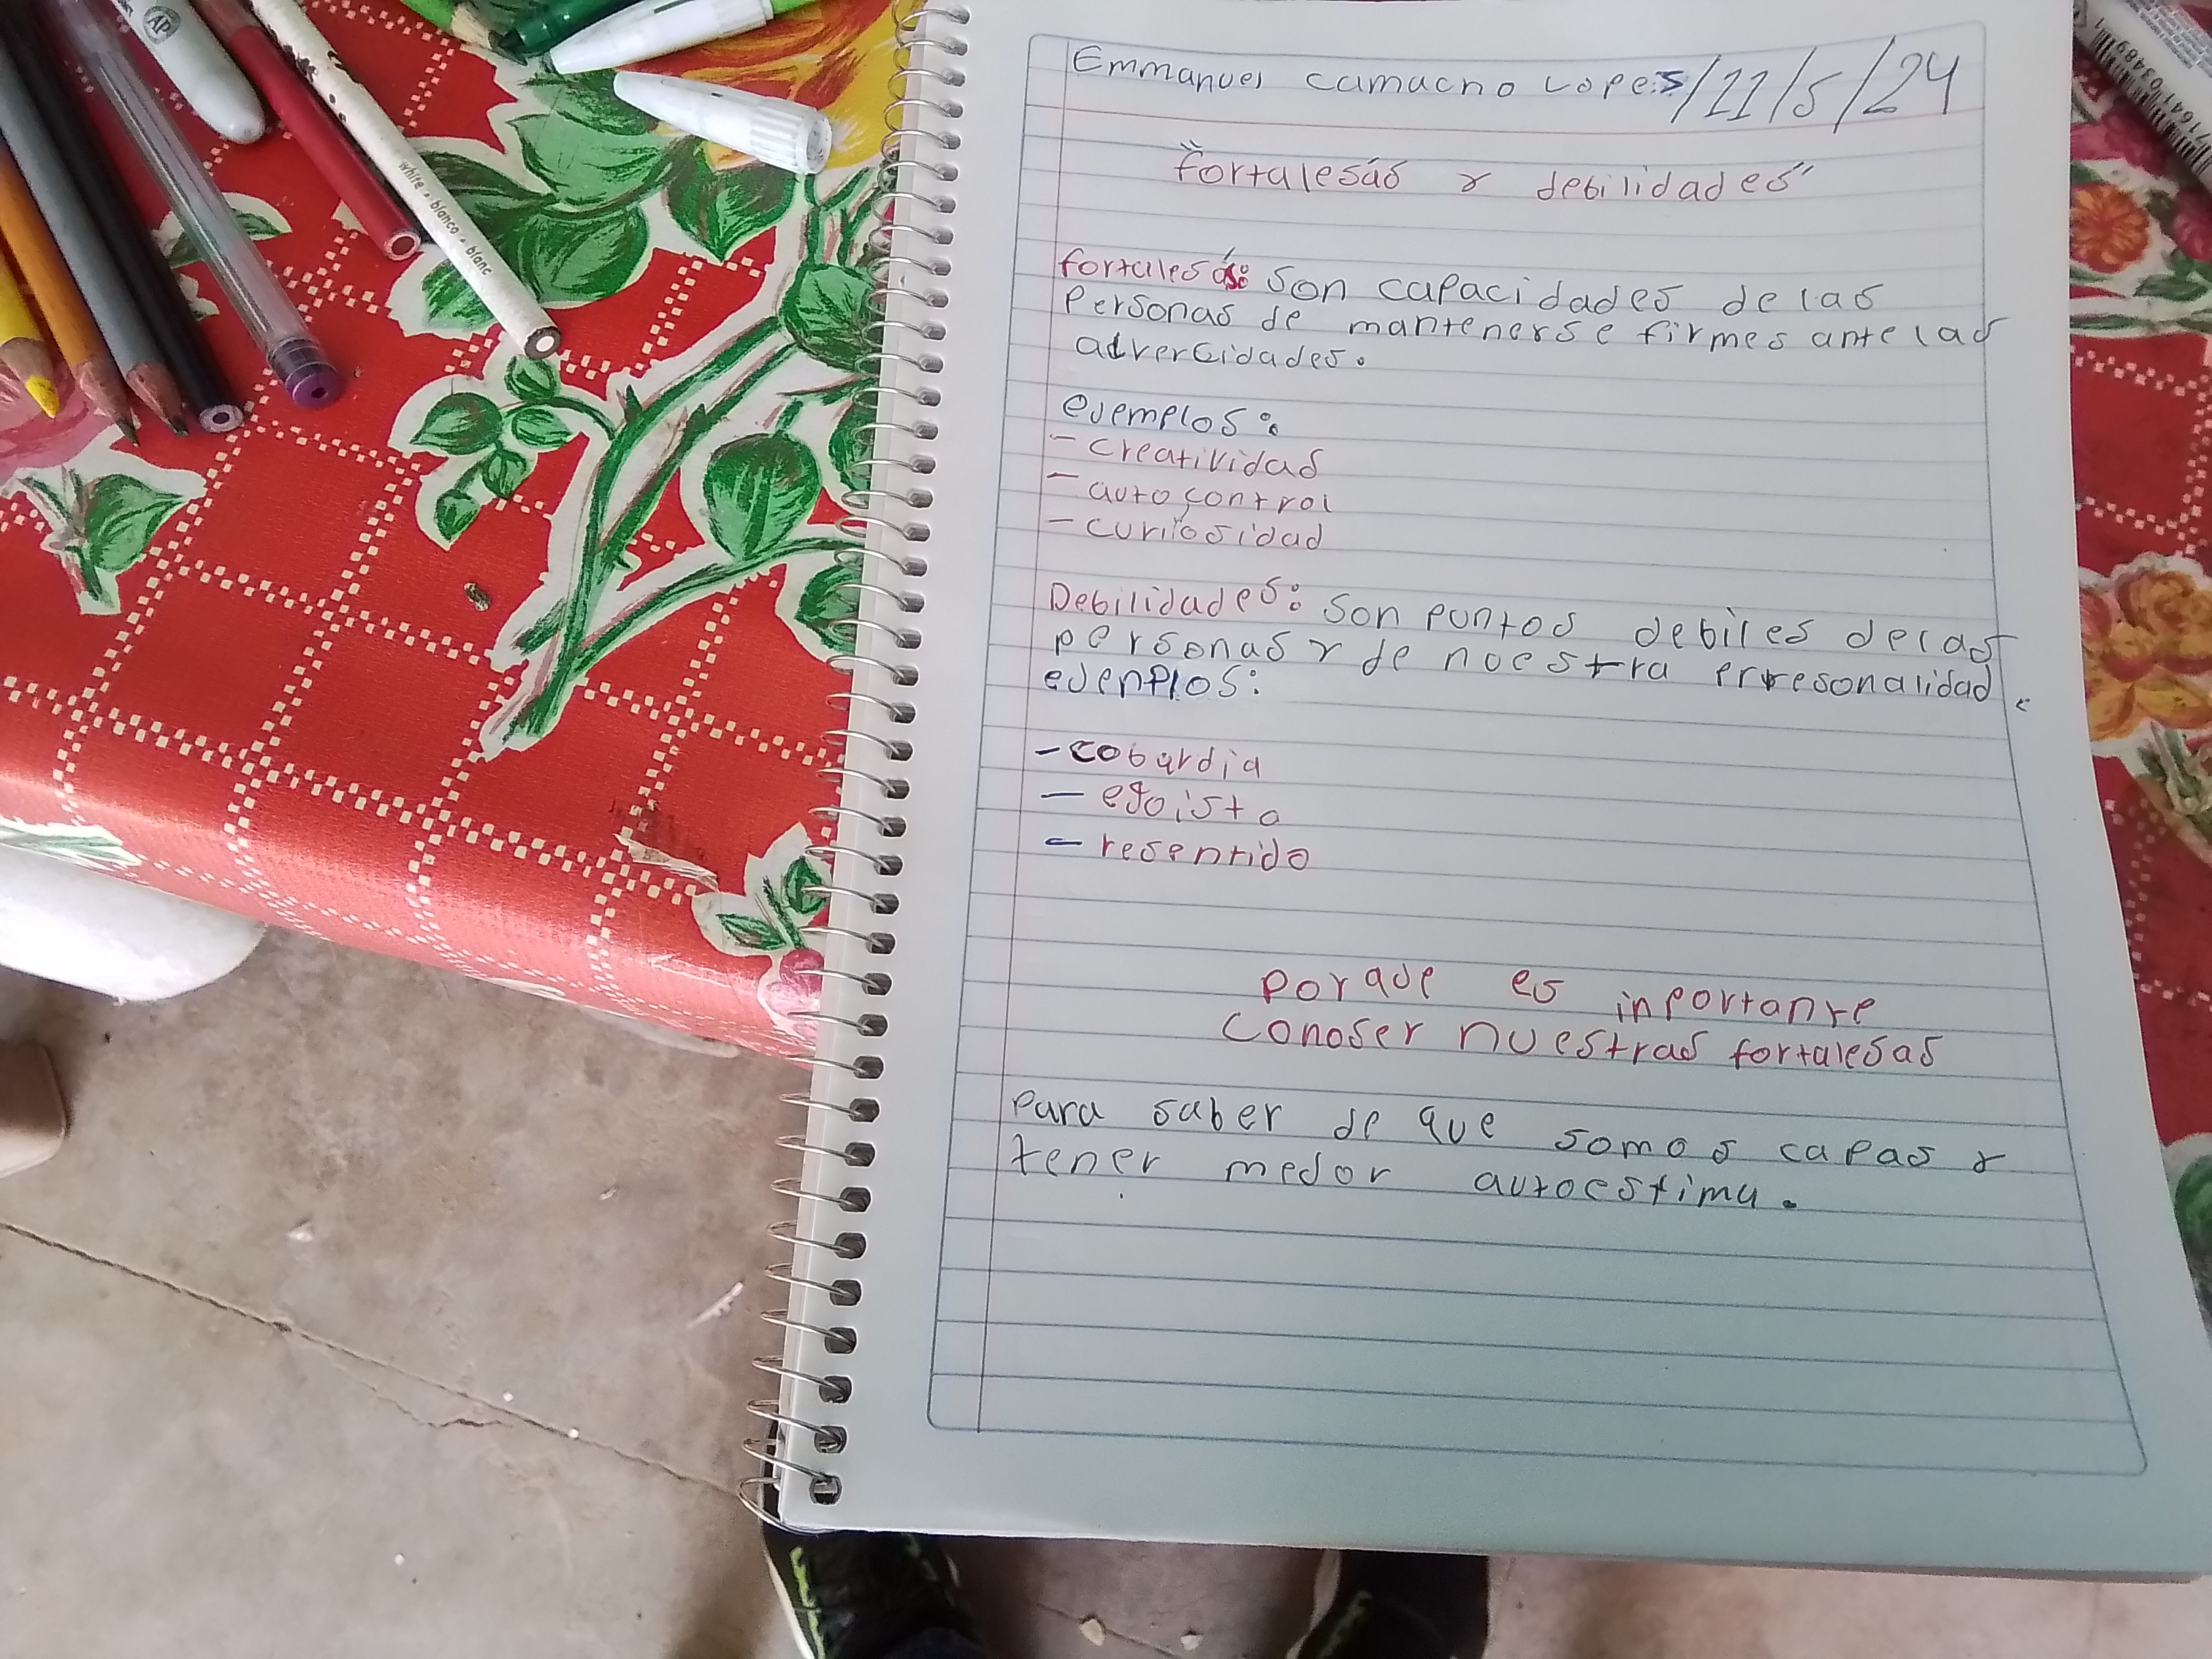 Emmanuel camacho Lopes/11/5/24
"fortalesas y debilidades"
fortalesas: Son capacidades de las
Personas de mantenerse firmes ante las
advercidades.
ejemplos:
- creatividad
- auto control
- curiosidad
Debilidades: Son puntos debiles de las
personas y de nuestra
ejenplos:
- cobardia
- egoista
- resentido
Por que es inportante
Conoser nuestras fortalesas
Para saber de que somos capas y
tener mejor autoestima.
white • blanco • blanc
AP